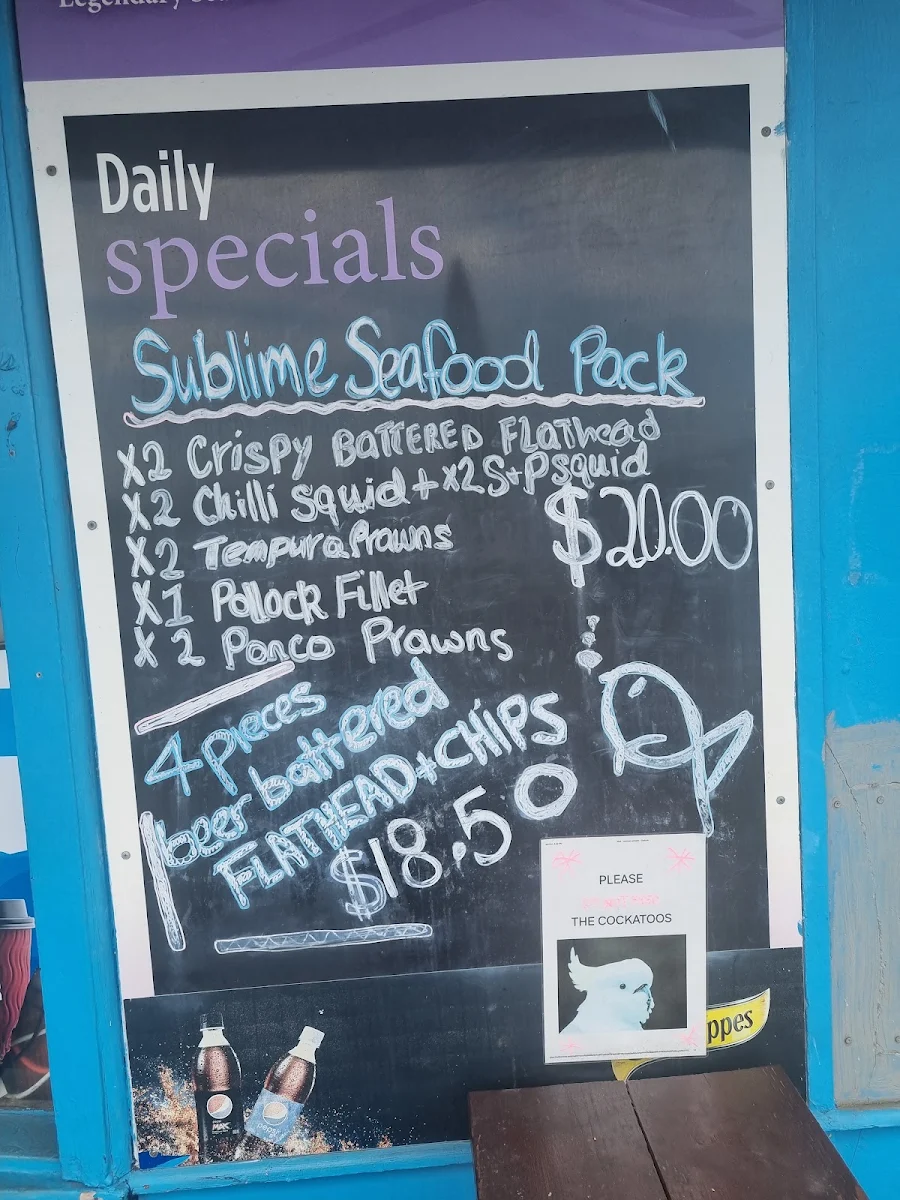 Legendary
Daily
specials
Sublime Seafood Pack
X2 Crispy BATTERED FLATHead
X2 Chilli squid + x2 S+P squid
$20.00
X2 Tempura Prawns
X1 Pollock Fillet
X2 Panco Prawns
4 pieces
beer battered
FLATHEAD + CHIPS
$18.50
PLEASE
THE COCKATOOS
ppes
MAX
pepsi